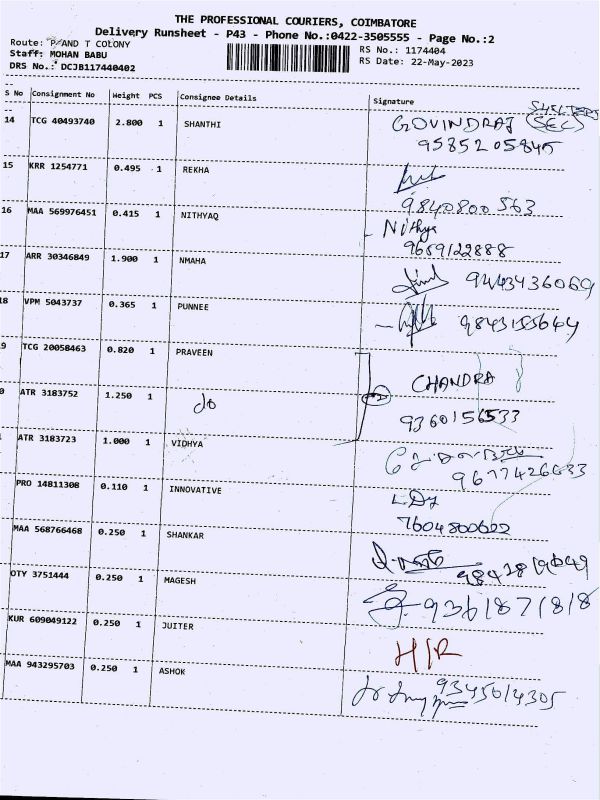 THE PROFESSIONAL COURIERS, COIMBATORE
Delivery Runsheet - P43 - Phone No.:0422-3505555 - Page No.:2
Route: P AND T COLONY
Staff: MOHAN BABU
DRS No.: DCJB117440402
RS No.: 1174404
RS Date: 22-May-2023
S No Consignment No Weight PCS Consignee Details Signature
14 TCG 40493740 2.800 1 SHANTHI GOVINDRAJ (SEC)
9585205845
15 KRR 1254771 0.495 1 REKHA
9840800563
16 MAA 569976451 0.415 1 NITHYAQ Nithya
9659122888
17 ARR 30346849 1.900 1 NMAHA 9443436069
18 VPM 5043737 0.365 1 PUNNEE 9843155644
9 TCG 20058463 0.820 1 PRAVEEN
0 ATR 3183752 1.250 1 do CHANDRA
9360156533
ATR 3183723 1.000 1 VIDHYA
9677426633
PRO 14811308 0.110 1 INNOVATIVE
7604800602
MAA 568766468 0.250 1 SHANKAR
OTY 3751444 0.250 1 MAGESH 9361871818
KUR 609049122 0.250 1 JUITER H/R
MAA 943295703 0.250 1 ASHOK 9345014305